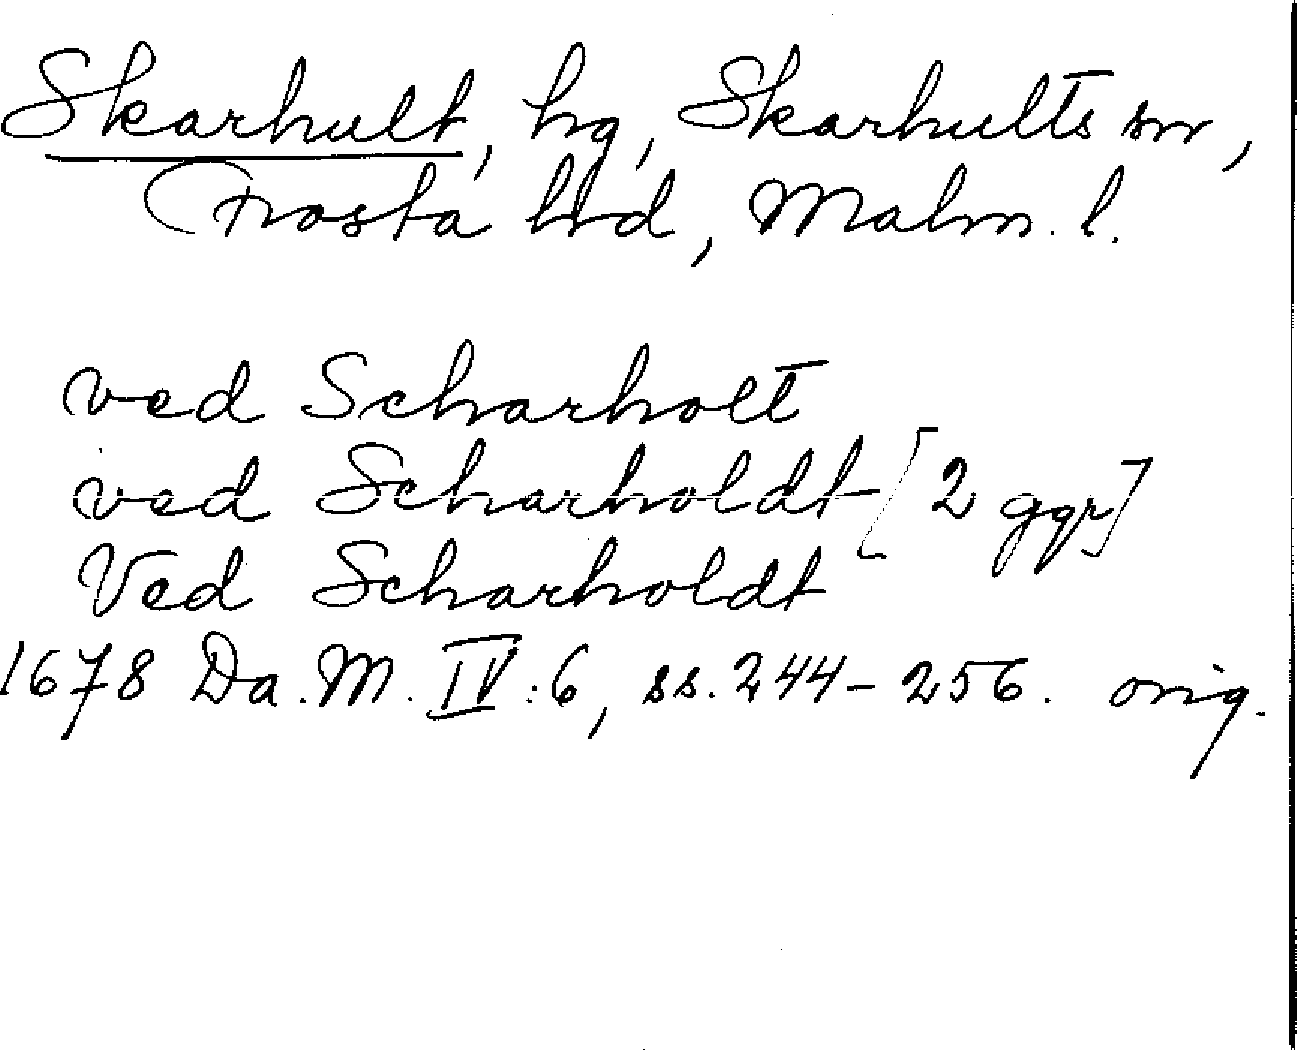 Skarhult, hg, Skarhults sn,
Frosta hrd, Malm. l.
ved Scharholt
ved Scharholdt [2 ggr]
Ved Scharholdt
1678 Da. M. IV:6, ss. 244-256. orig.